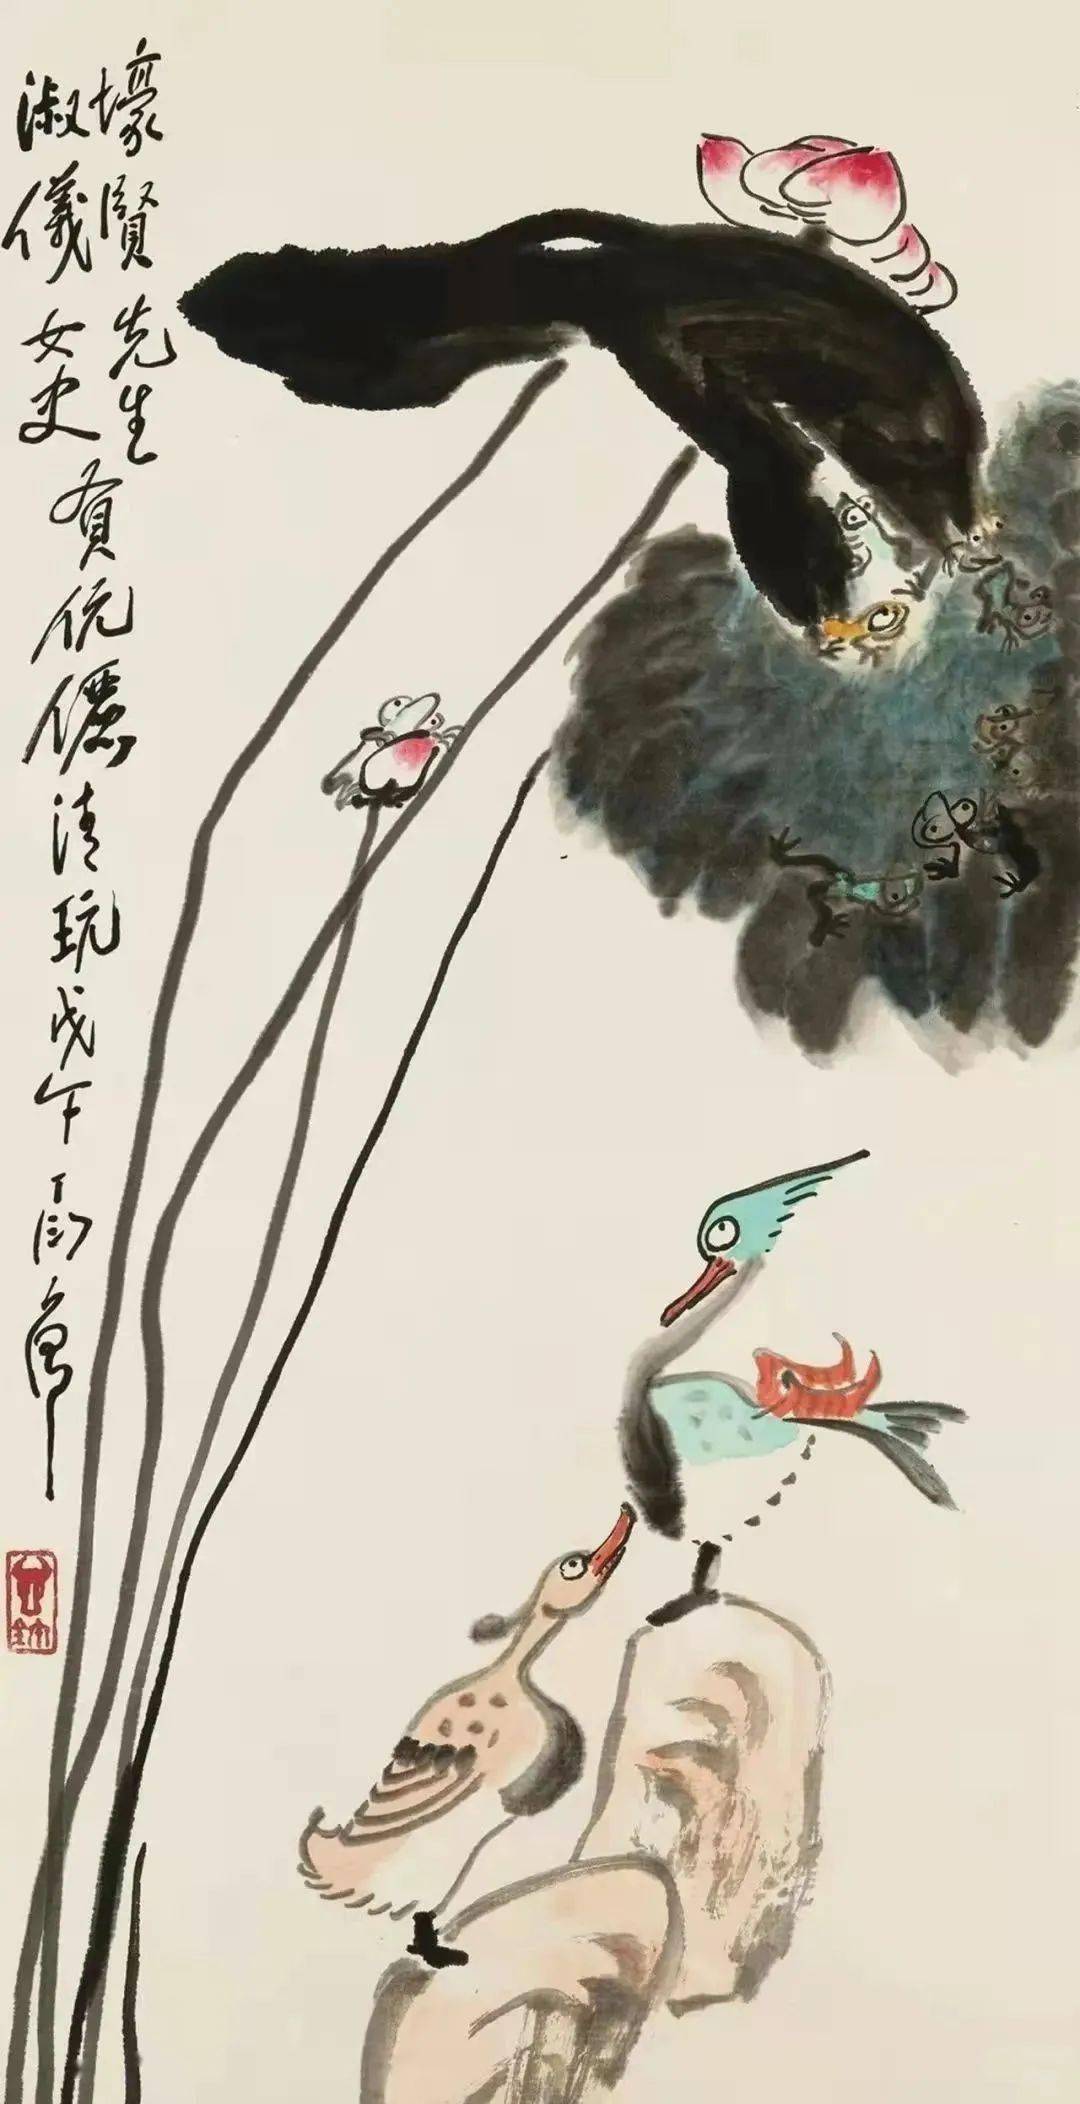 壕賢先生
淑儀女史
賢伉儷清玩戊午丁衍庸